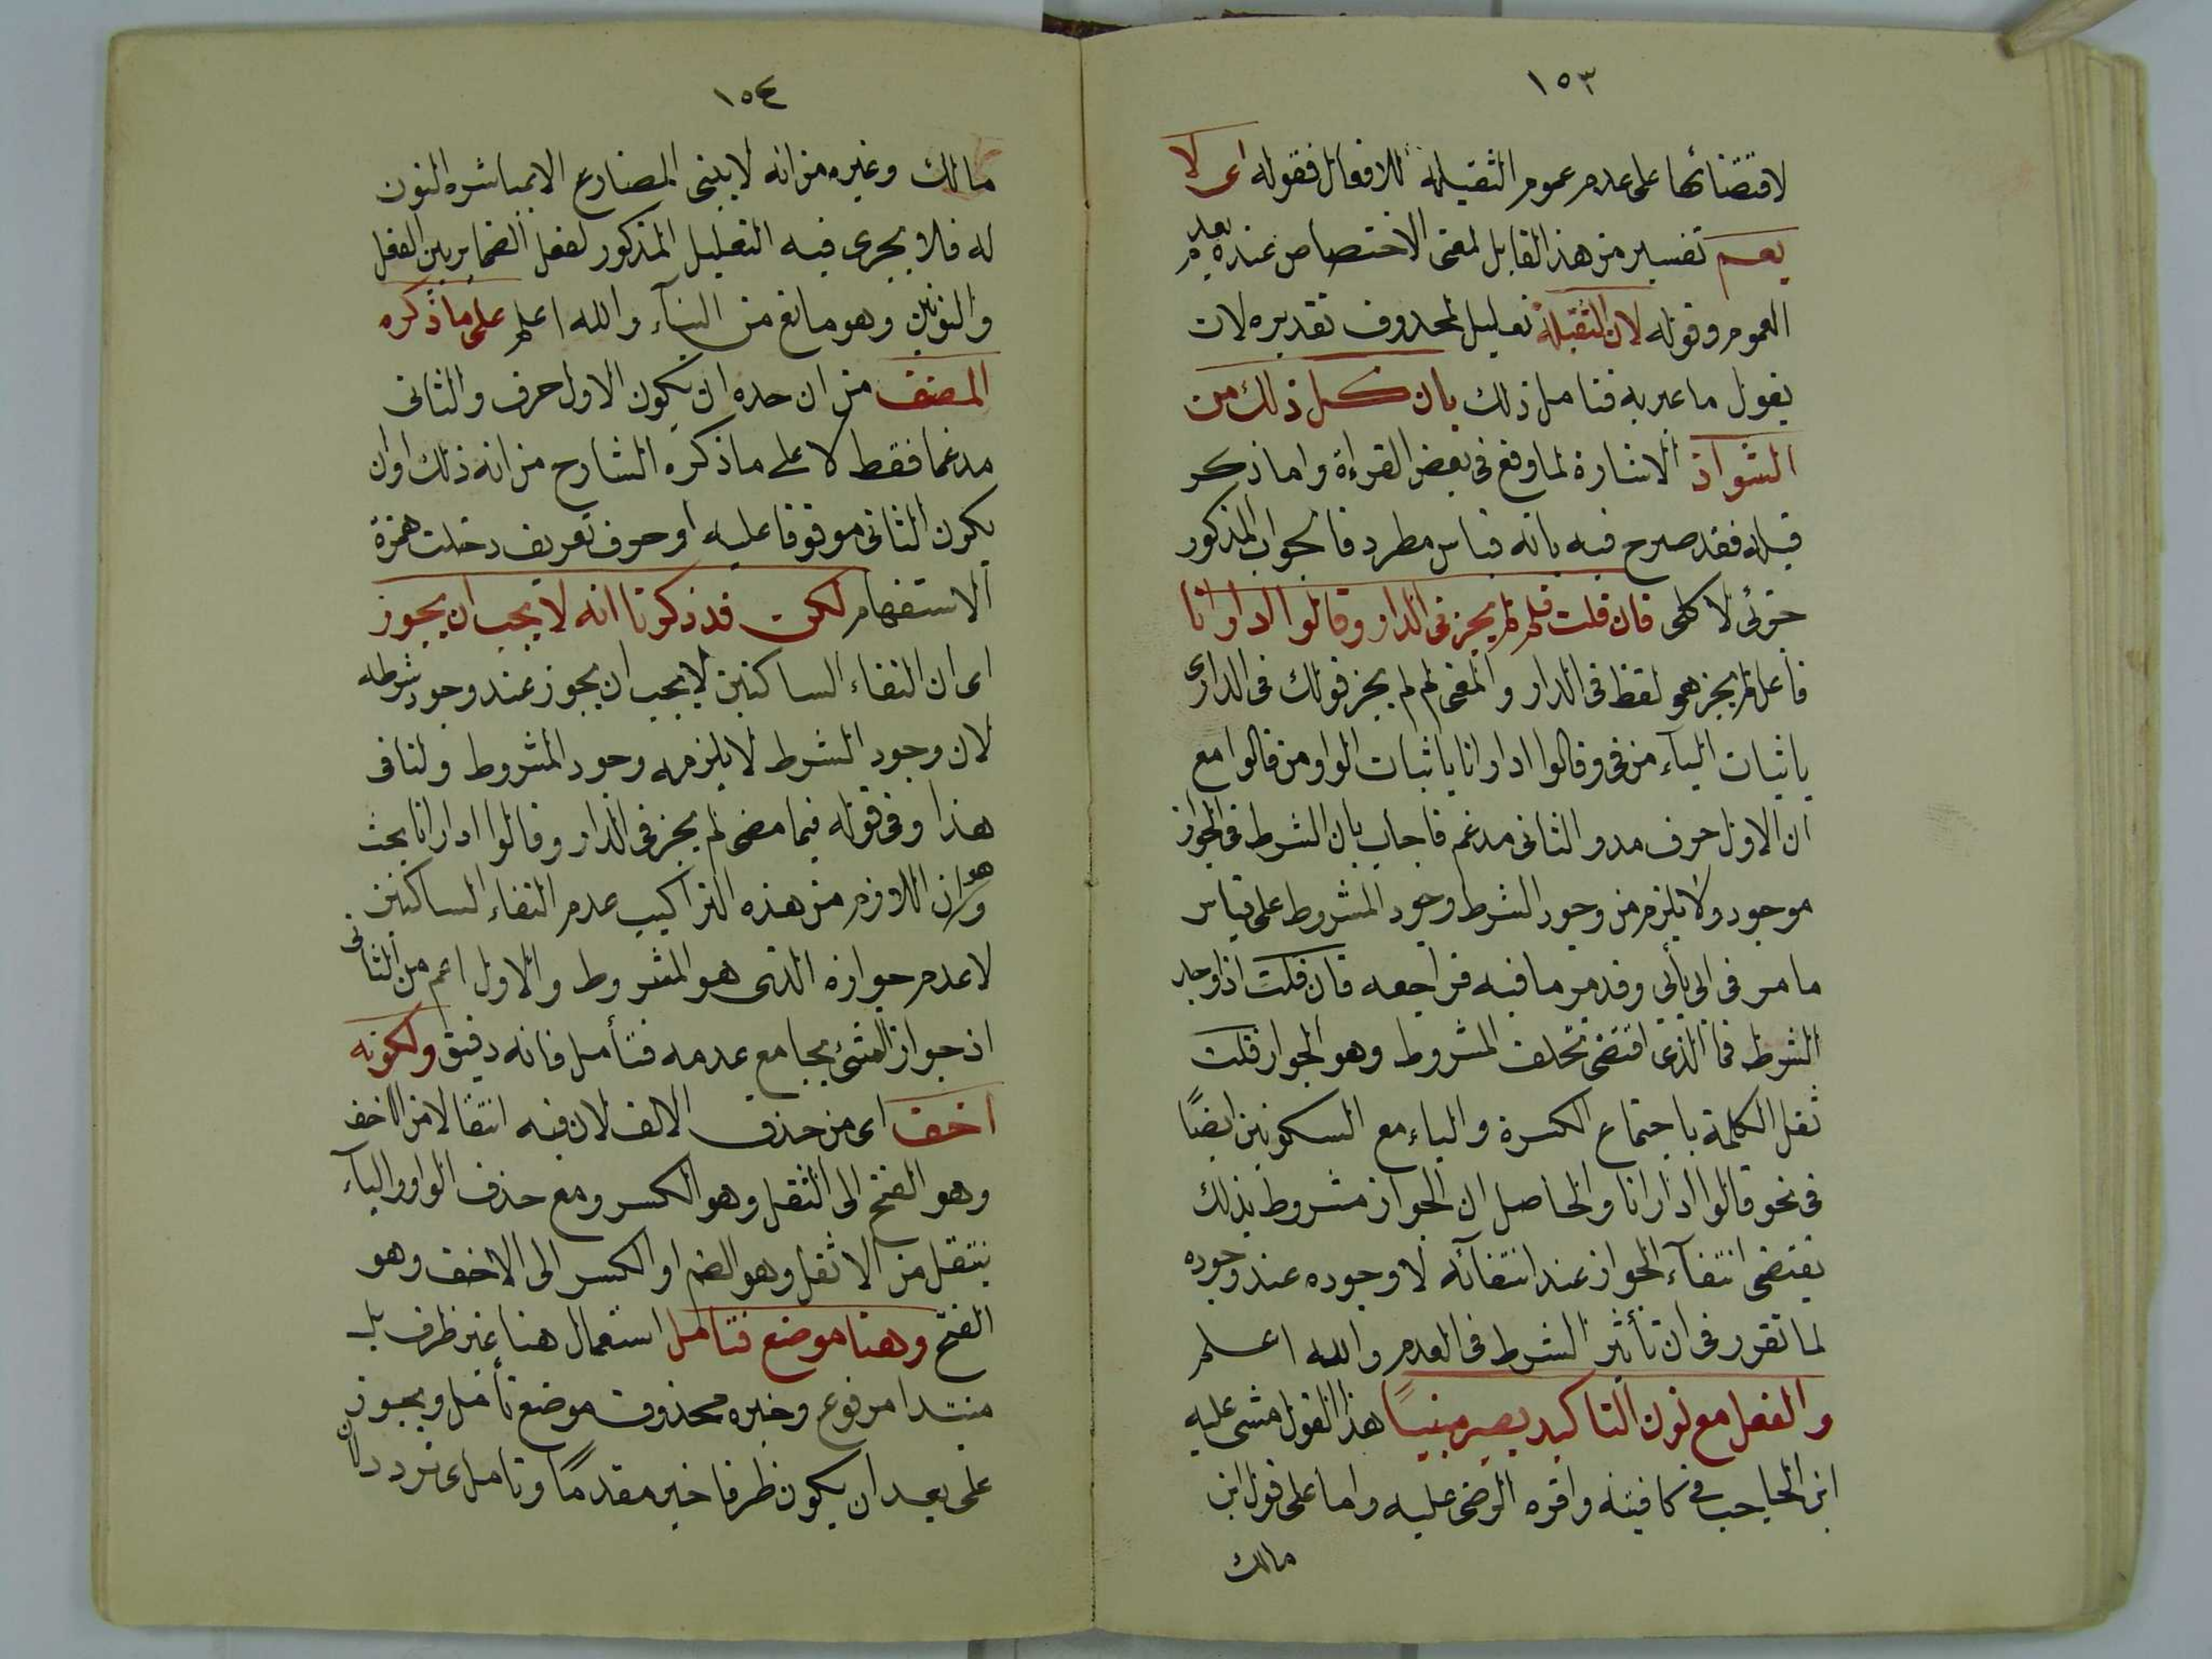 ١٥٣
لاقتضائها على عدم عموم الثقيلة للافعال فقوله اى لا
يعم تفسير من هذا القايل لمعنى الاختصاص عنده بعدم
العموم وقوله لان الثقيلة تعليل لمحذوف تقديره لان
يقول ما عبر به فتامل ذلك بان كل ذلك من
الشواذ الاشارة لما وقع فى بعض القراءة واما ذكر
قبله فقد صرح فيه بانه قياس مطرد فالجواب المذكور
جزئى لا كلى فان قلت فلم لم يجز فى الدار وقالوا ادارانا
فاعل لم يجز هو لفظ فى الدار والمعنى لم لم يجز قولك فى الدار
باثبات الياء من فى وقالوا ادارانا باثبات الواو من قالوا مع
ان الاول حرف مد والثانى مدغم فاجاب بان الشرط فى الجواز
موجود ولا يلزم من وجود الشرط وجود المشروط على قياس
ما مر فى ابى يأبى وقد مر ما فيه فراجعه فان قلت اذا وجد
الشرط فما الذى اقتضى تخلف المشروط وهو الجواز قلت
ثقل الكلمة باجتماع الكسرة والياء مع السكونين ايضًا
فى نحو قالوا ادارانا والحاصل ان الجواز مشروط بذلك
يقتضى انتفآء الجواز عند انتفآئه لا وجوده عند وجوده
لما تقرر فى ان تأثير الشرط فى العدم والله اعلم
والفعل مع نون التاكيد يصير مبنيًا هذا القول مشى عليه
ابن الحاجب فى كافيته واقره الرضى عليه واما على قول ابن
مالك
١٥٤
مالك وغيره من انه لا يبنى المضارع الا بمباشرة النون
له فلا يجرى فيه التعليل المذكور لفصل الضماير بين الفعل
والنونين وهو مانع من البنآء والله اعلم على ما ذكره
المصنف من ان حده ان يكون الاول حرف والثانى
مدغما فقط لا على ما ذكره الشارح من انه ذلك او ان
يكون الثانى موقوفا عليه او حرف تعريف دخلت همزة
الاستفهام لكن قد ذكرنا انه لا يجب ان يجوز
اى ان التقاء الساكنين لا يجب ان يجوز عند وجود شرطه
لان وجود الشرط لا يلزمه وجود المشروط ولنا فى
هذا وفى قوله فيما مضى لم يجز فى الدار وقالوا ادارانا بحث
وهو ان اللازم من هذه التراكيب عدم التقاء الساكنين
لا عدم جوازه الذى هو المشروط والاول اعم من الثانى
اذ جواز الشئ يجامع عدمه فتأمل فانه دقيق ولكونه
اخف اى من حذف الالف لان فيه انتقالا من الاخف
وهو الفتح الى الثقل وهو الكسر ومع حذف الواو والياء
ينتقل من الاثقل وهو الضم او الكسر الى الاخف وهو
الفتح وهنا موضع فتامل استعمال هنا غير ظرف بل
مبتدا مرفوع وخبره محذوف موضع تأمل ويجوز
على بعد ان يكون ظرفا خبر مقدمًا وتامل اى تردد